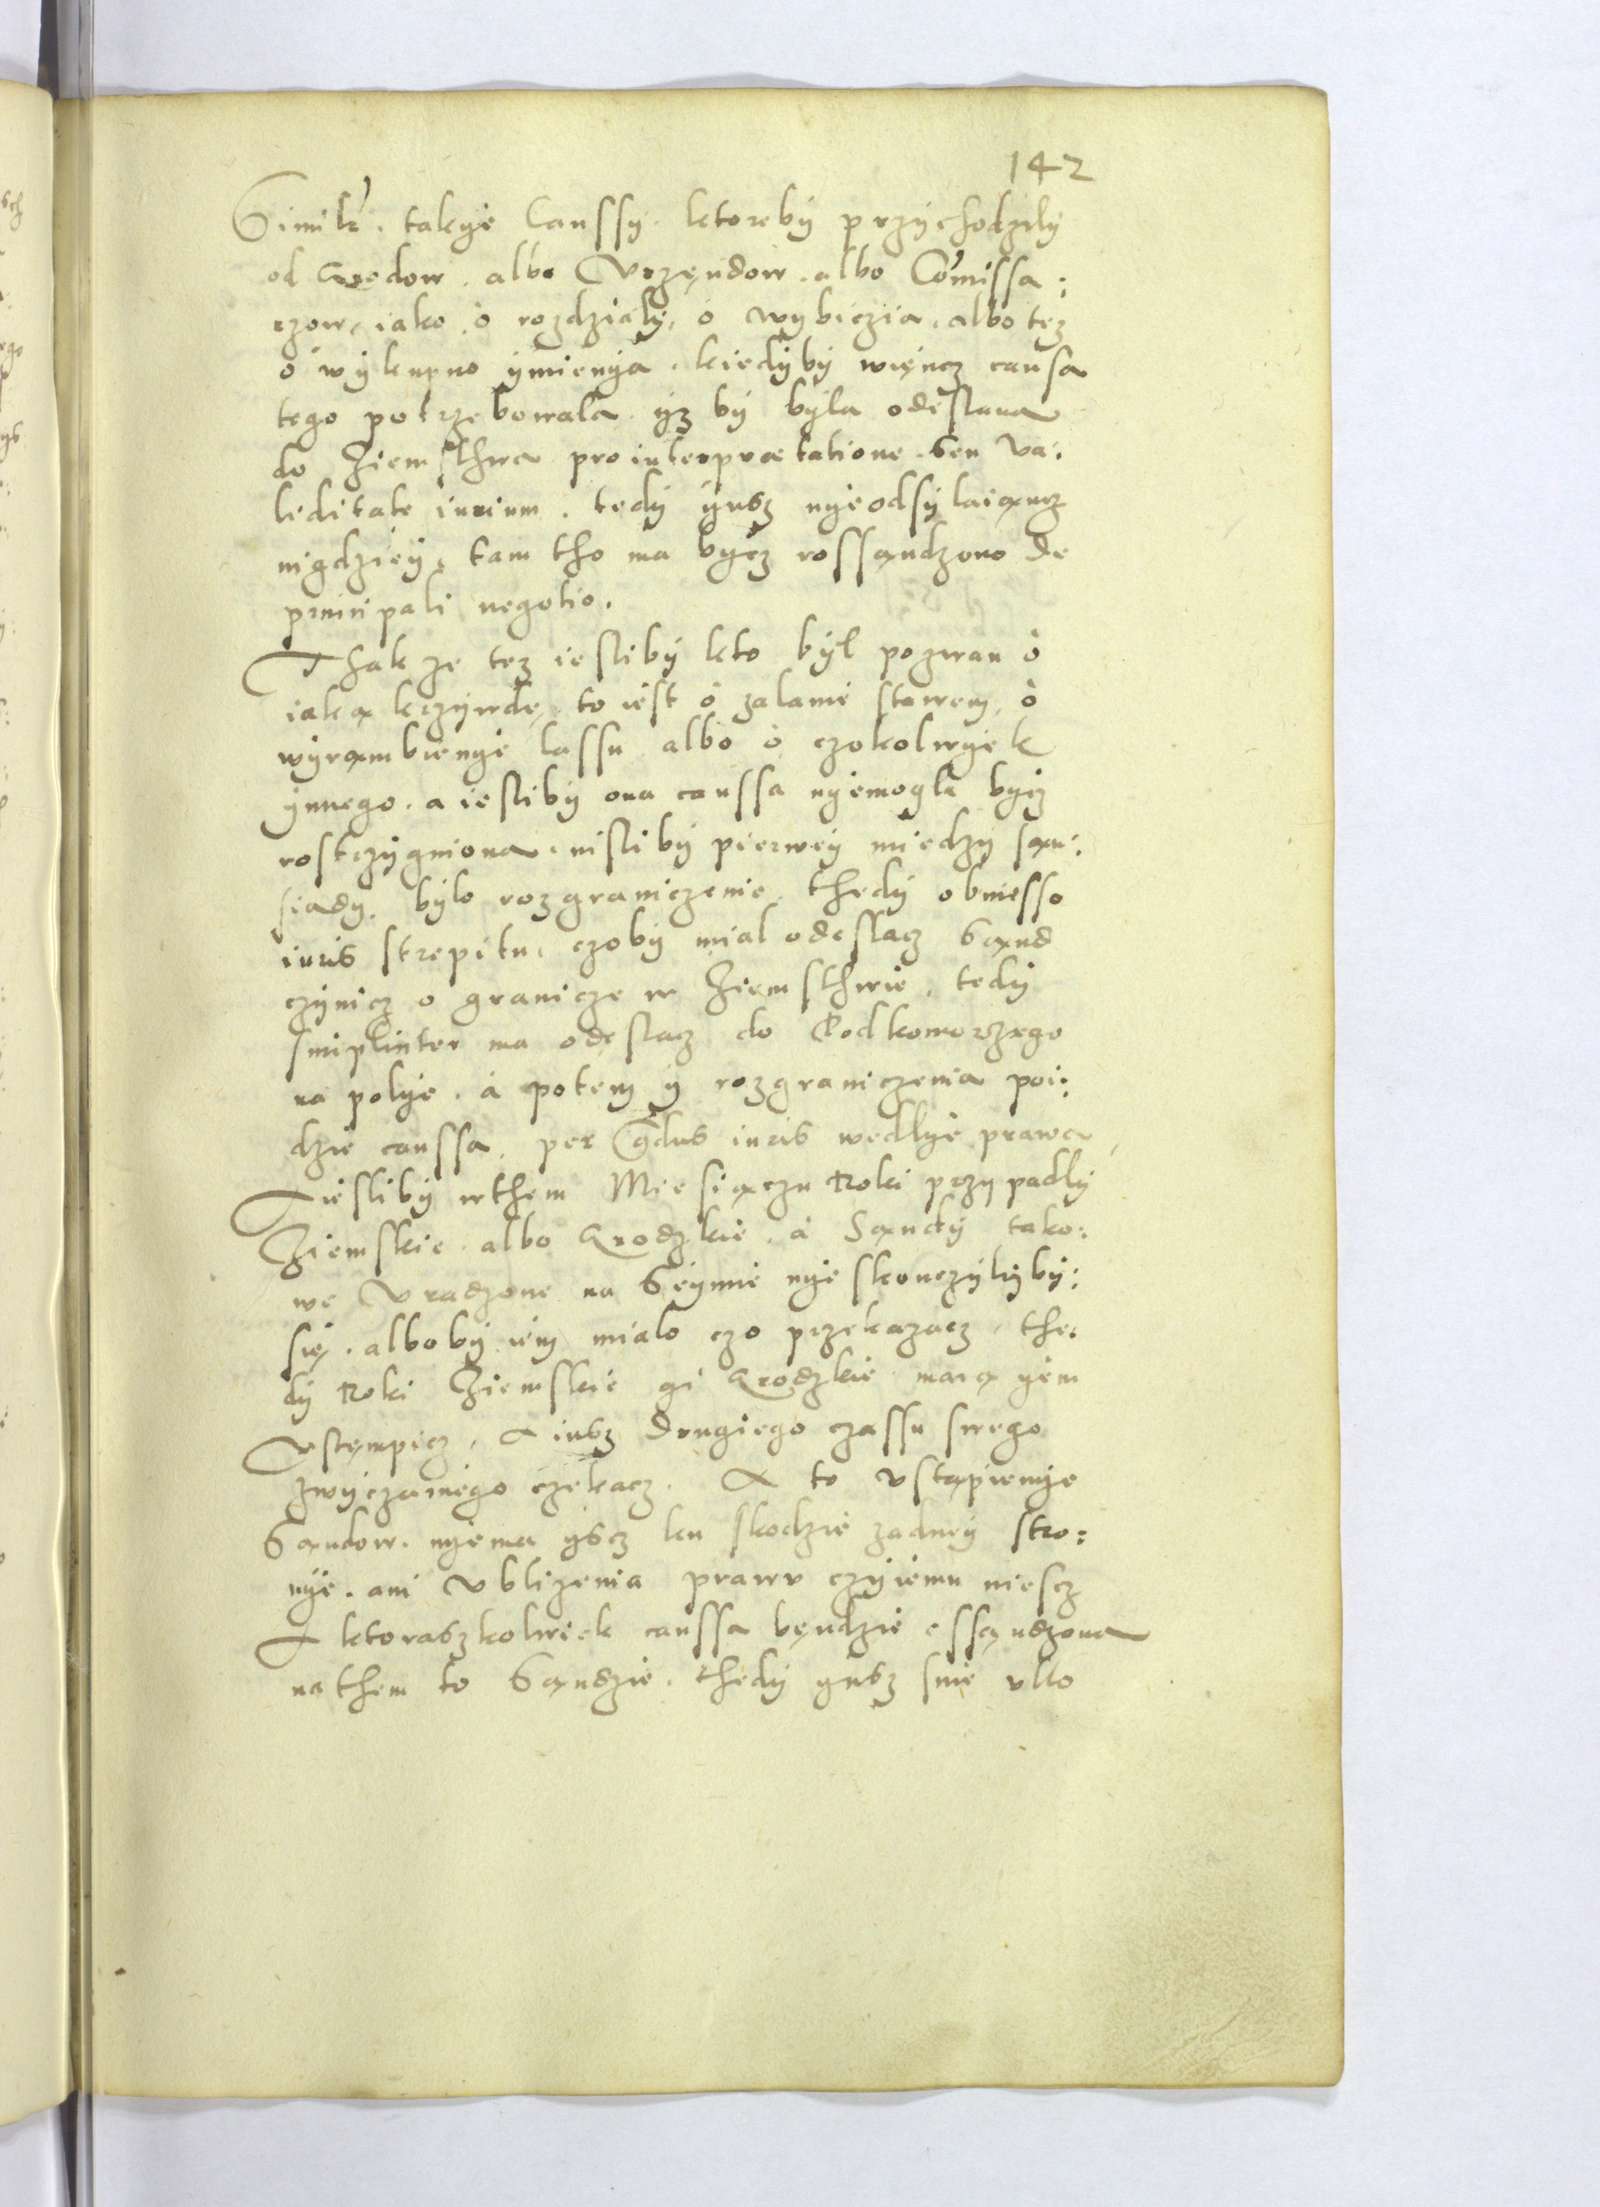 142
Similr. takÿe Caussÿ. ktorebÿ przÿchodzilÿ
od Grodow. albo Vrzęndow. albo Comissa:
rzow, iako. o rozdzialÿ, o wÿbiczia, albo tez
o wÿkupno ÿmienÿa. kiedÿbÿ więncz causa
tego potrzebowala ÿz bÿ bÿla odeslana
do Ziemsthwa pro interprætatione. seu va:
leditate iurium. tedÿ ÿusz nÿeodsÿlaiąncz
nigdzieÿ, tam tho ma bÿcz rossąndzono de
principali negotio.
Thak ze tez iesslibÿ kto bÿl pozwan o
iaką krzÿwdę, to iest o zalanie stawem, o
wÿrąmbienÿe lassu albo o czokolwÿek
ÿnnego. a ieslibÿ ona caussa nÿemogla bÿcz
rostrzÿgniona. nislibÿ pierweÿ miedzÿ sąn:
siadÿ. bÿlo rozgraniczenie. thedÿ obmesso
iuris strepitu, czobÿ mial odeslacz Sąnd
czÿnicz o granicze w Ziemsthwie. tedÿ
simpliciter ma odeslacz do Podkomorzego
na polÿe. a potem ÿ rozgraniczenia poi:
dzie caussa. per Gdus iuris wedlÿe prawa
A ieslibÿ wthem Miesiączu Roki przypadlÿ
Ziemskie. albo Grodzkie. a Sąndÿ tako:
we Vradzone na Seÿmie nÿe skonczÿlÿbÿ:
się. albobÿ iem mialo czo przekazacz, the:
dÿ Roki Ziemskie gi Grodzkie maią ÿem
Vstęmpicz, A iusz drugiego czassu swego
zwÿczainego czekacz. A to vstąpienÿe
Sąndow. nÿema ÿscz ku skodzie zadneÿ stro:
nÿe. ani Vblizenia prawu czÿiemu niescz
A ktoraszkolwiek caussa bęndzie ossąndzona
na them to Sąndzie. thedÿ ÿusz sine vllo